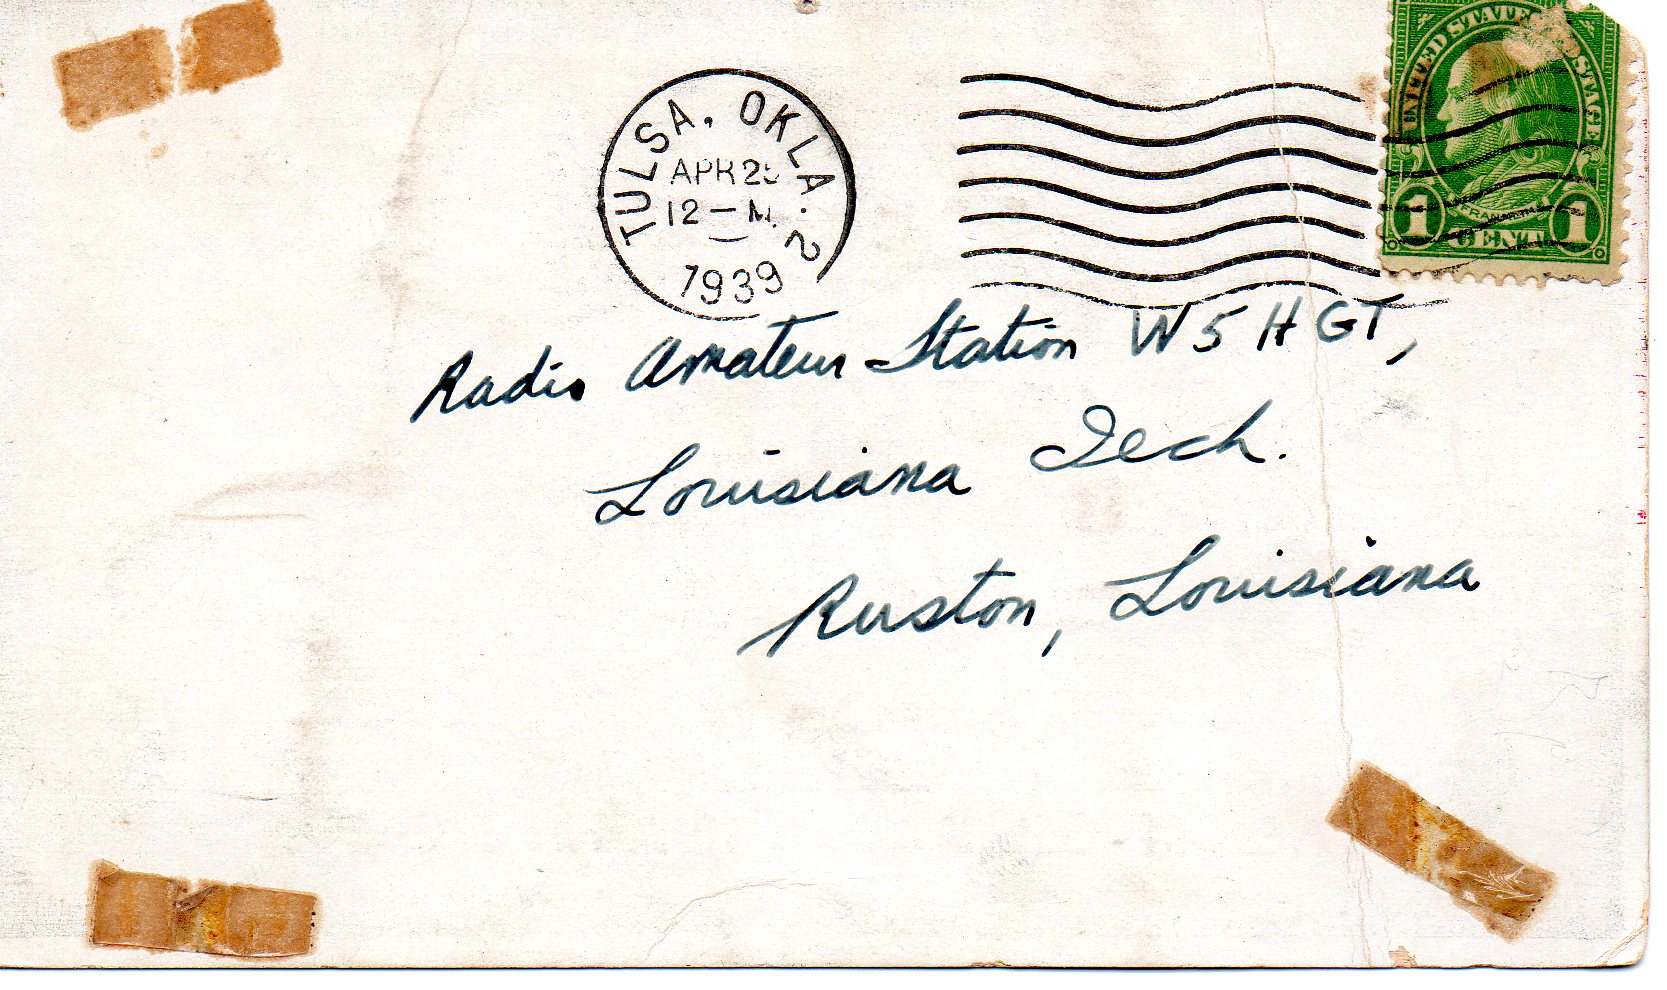 TULSA, OKLA. 2
APR
12 — M.
1939
UNITED STATES POSTAGE
FRANKLIN
1 CENT 1
Radio Amateur Station W5HGT,
Louisiana Tech.
Ruston, Louisiana